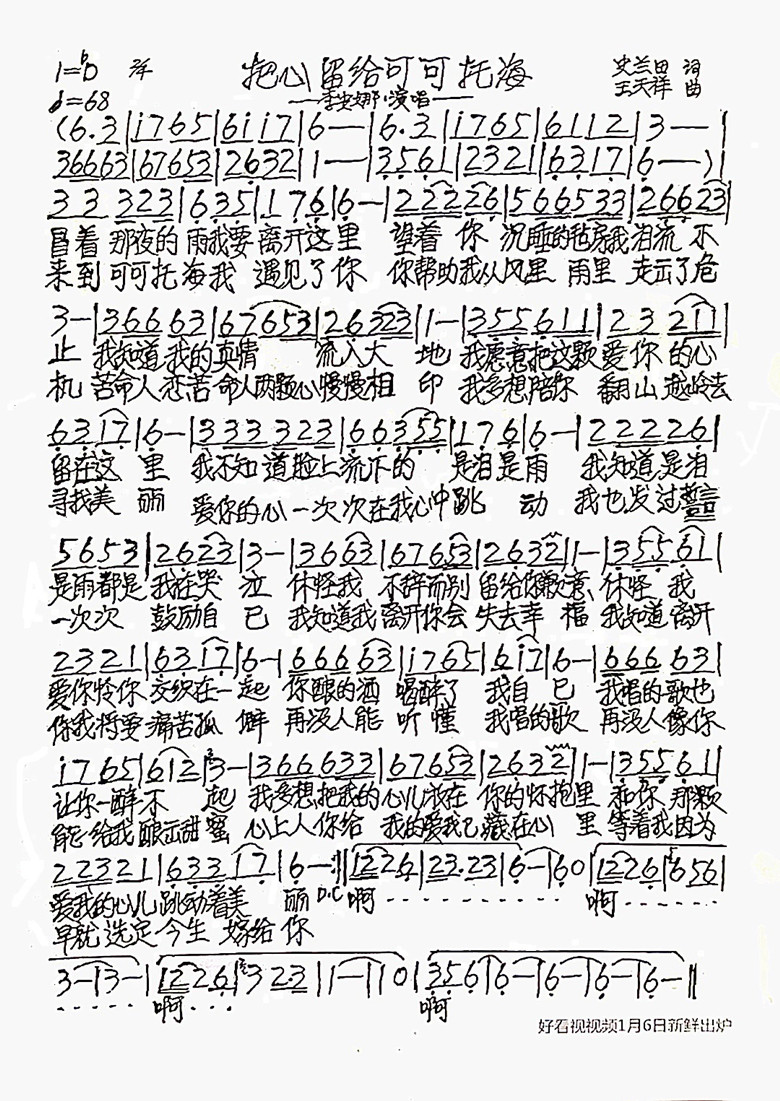 1=ᵇD 2/4 把心留给可可托海 史兰田 词
♩=68 —李安娜·演唱— 王天祥 曲
(6.3|i765|6i17|6—|6.3|i765|6112|3—|
36663|67653|2632|1—|3561|2321|6317|6—)|
33 323|635|176|6—|222226|566533|26623|
冒着 那夜的 雨我要 离开这里 望着 你 沉睡的毡房我泪流 不
来到 可可托海我 遇见了你 你帮助我从风里 雨里 走云了危
3—|36663|67653|26323|1—|355611|23 211|
止 我知道我的真情 流入大 地 我愿意把这颗 爱你 的心
机 苦命人恋苦命人两颗心慢慢相 印 我多想陪你 翻山越岭去
6317|6—|333 323|66355|176|6—|222226|
留在这 里 我不知道脸上流下的 是泪是雨 我知道是泪
寻找美 丽 爱你的心一次次在我心中跳 动 我也发过誓言
5653|2623|3—|3663|67653|2632|1—|35561|
是雨都是 我在哭 泣 休怪我 不辞而别 留给你歉意 休怪 我
一次次 鼓励自 己 我知道我离开你会 失去幸 福 我知道离开
2321|6317|6—|66663|i765|6i7|6—|666 63|
爱你怜你 交织在一起 你酿的酒 喝醉了 我自 己 我唱的歌也
你我将要 痛苦孤 僻 再没人能 听懂 我唱的歌 再没人像你
i765|612|3—|366633|67653|2632|1—|35561|
让你一醉不 起 我多想把我的心儿放在 你的怀抱里 和你 那颗
能给我酿云甜 蜜 心上人你给 我的爱我已藏在心 里 等着我因为
22321|63317|6—:||1226|23.23|6—|60|1226|656|
爱我的心儿跳动着美 丽 D.C 啊 - - - - - - - 啊 - - - - -
早就 选定今生 嫁给你
3—|3—|1226|3 2.3|1—|10|356|6—|6—|6—|6—||
- - - - - 啊 - - - 啊
好看视视频1月6日新鲜出炉